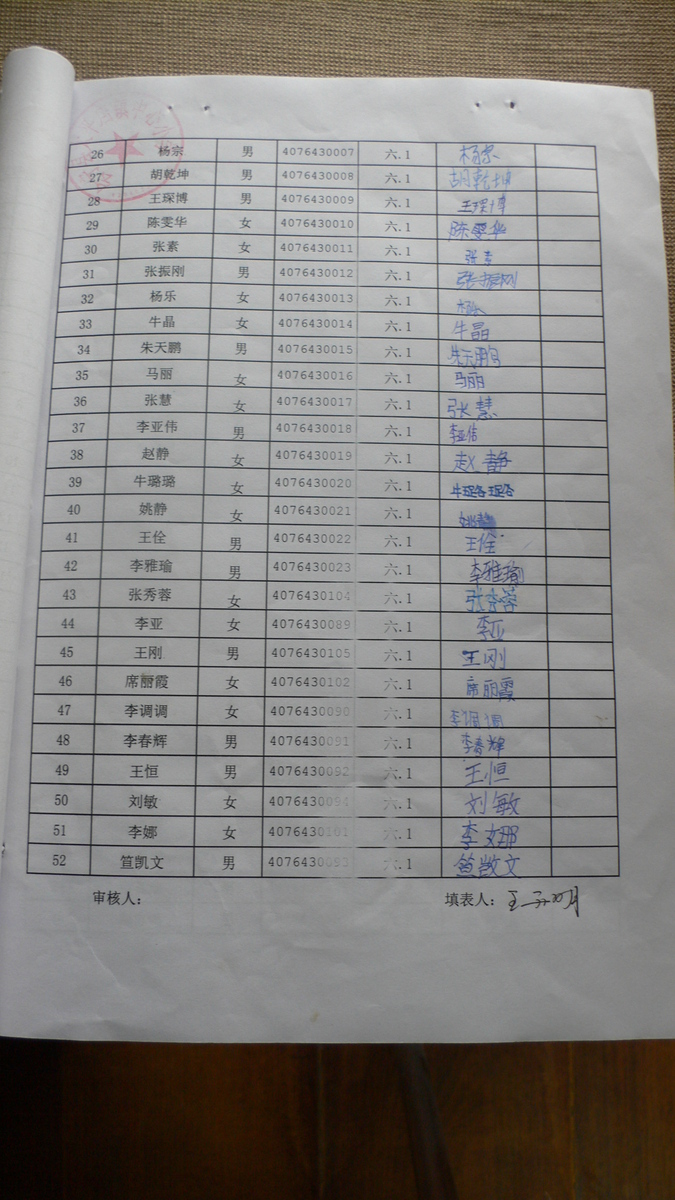 26 杨宗 男 4076430007 六.1 杨宗
27 胡乾坤 男 4076430008 六.1 胡乾坤
28 王琛博 男 4076430009 六.1 王琛博
29 陈雯华 女 4076430010 六.1 陈雯华
30 张素 女 4076430011 六.1 张素
31 张振刚 男 4076430012 六.1 张振刚
32 杨乐 女 4076430013 六.1 杨乐
33 牛晶 女 4076430014 六.1 牛晶
34 朱天鹏 男 4076430015 六.1 朱天鹏
35 马丽 女 4076430016 六.1 马丽
36 张慧 女 4076430017 六.1 张慧
37 李亚伟 男 4076430018 六.1 李亚伟
38 赵静 女 4076430019 六.1 赵静
39 牛璐璐 女 4076430020 六.1 牛璐璐
40 姚静 女 4076430021 六.1 姚静
41 王佺 男 4076430022 六.1 王佺
42 李雅瑜 男 4076430023 六.1 李雅瑜
43 张秀蓉 女 4076430104 六.1 张秀蓉
44 李亚 女 4076430089 六.1 李亚
45 王刚 男 4076430105 六.1 王刚
46 席丽霞 女 4076430102 六.1 席丽霞
47 李调调 女 4076430090 六.1 李调调
48 李春辉 男 4076430091 六.1 李春辉
49 王恒 男 4076430092 六.1 王恒
50 刘敏 女 4076430094 六.1 刘敏
51 李娜 女 4076430101 六.1 李娜
52 笪凯文 男 4076430093 六.1 笪凯文
审核人： 填表人：王